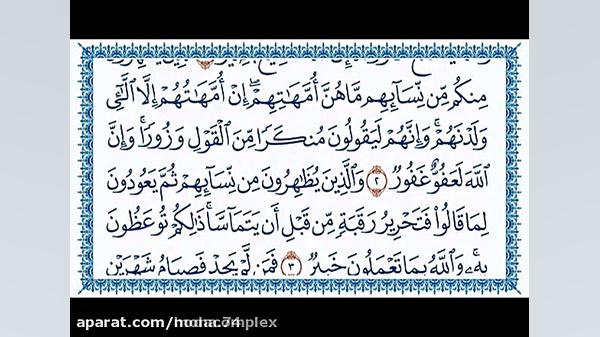 مِنكُم مِّن نِّسَآئِهِم مَّا هُنَّ أُمَّهَٰتِهِمْ ۖ إِنْ أُمَّهَٰتُهُمْ إِلَّا ٱلَّٰٓـِٔي
وَلَدْنَهُمْ ۚ وَإِنَّهُمْ لَيَقُولُونَ مُنكَرًا مِّنَ ٱلْقَوْلِ وَزُورًا ۚ وَإِنَّ
ٱللَّهَ لَعَفُوٌّ غَفُورٌ ﴿٢﴾ وَٱلَّذِينَ يُظَٰهِرُونَ مِن نِّسَآئِهِمْ ثُمَّ يَعُودُونَ
لِمَا قَالُوا۟ فَتَحْرِيرُ رَقَبَةٍ مِّن قَبْلِ أَن يَتَمَآسَّا ۚ ذَٰلِكُمْ تُوعَظُونَ
بِهِۦ ۚ وَٱللَّهُ بِمَا تَعْمَلُونَ خَبِيرٌ ﴿٣﴾ فَمَن لَّمْ يَجِدْ فَصِيَامُ شَهْرَيْنِ
aparat.com/